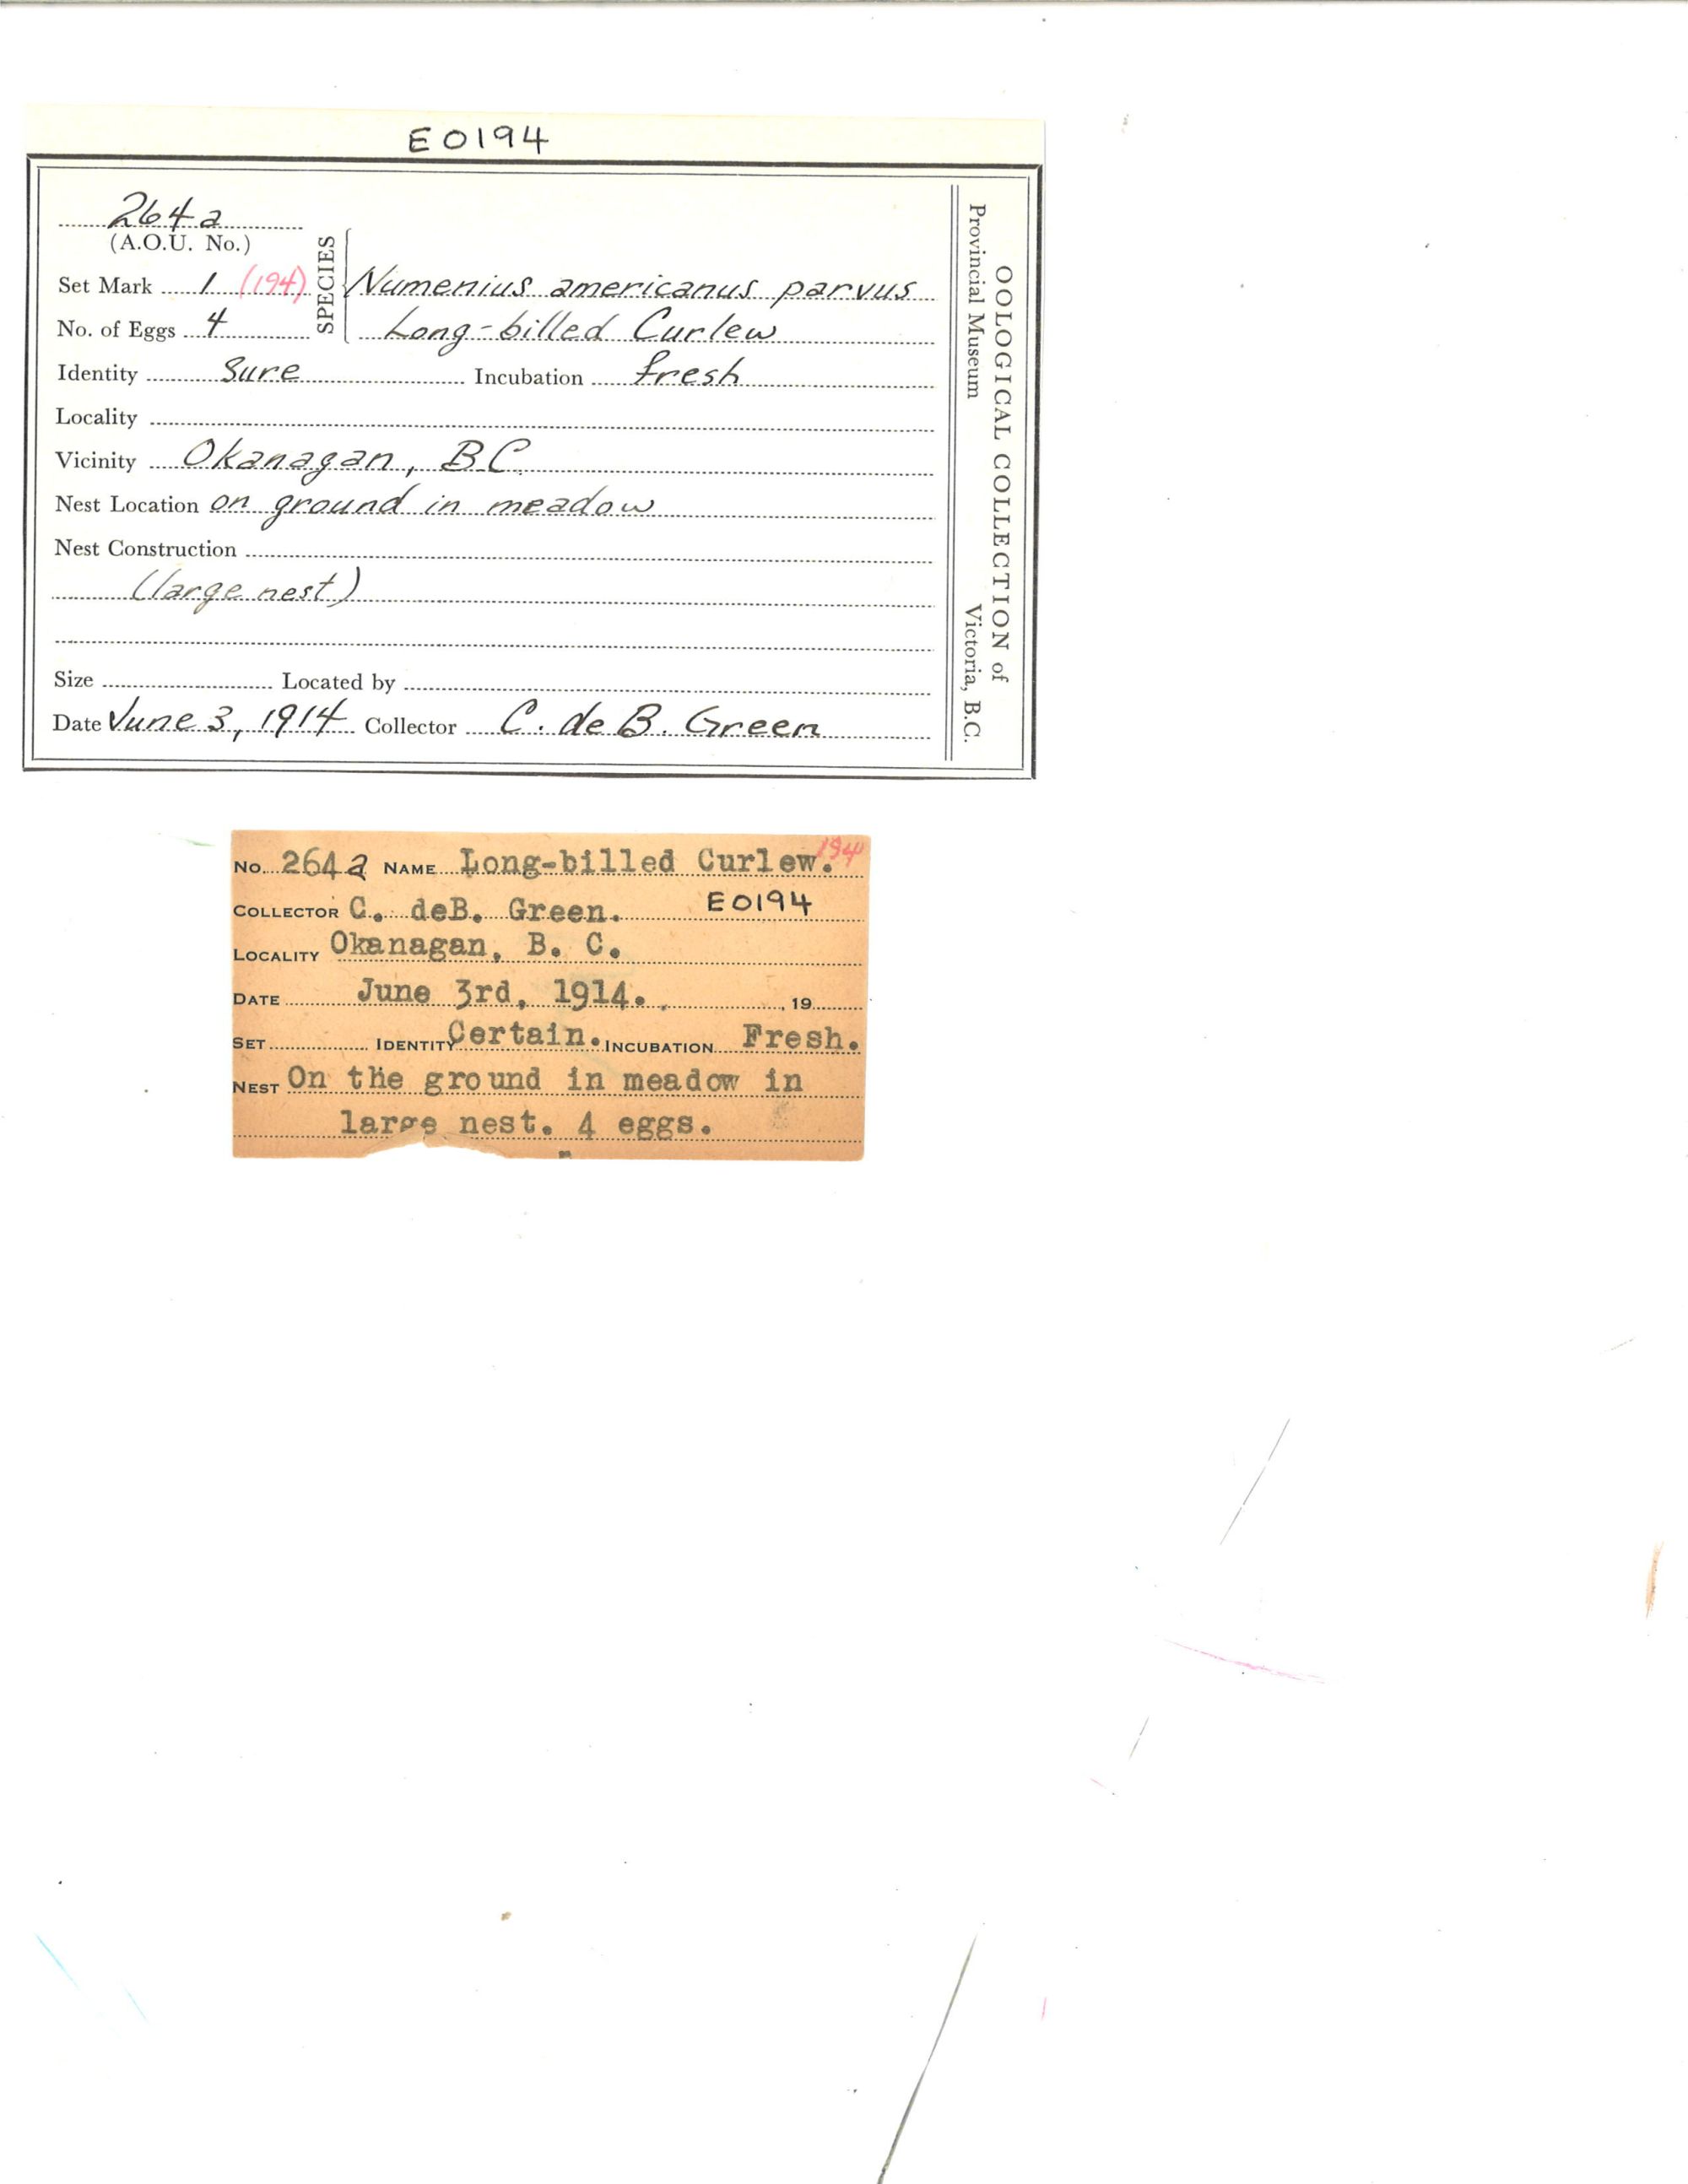 E0194
264a
(A.O.U. No.)
SPECIES
Set Mark 1 (194) Numenius americanus parvus
No. of Eggs 4 Long-billed Curlew
Identity Sure Incubation fresh
Locality
Vicinity Okanagan, B.C.
Nest Location on ground in meadow
Nest Construction
(large nest)
Size Located by
Date June 3, 1914 Collector C. de B. Green
OOLOGICAL COLLECTION of
Provincial Museum Victoria, B.C.
194
No. 264a NAME Long-billed Curlew.
COLLECTOR C. deB. Green. E0194
LOCALITY Okanagan, B. C.
DATE June 3rd, 1914. , 19
SET IDENTITY Certain. INCUBATION Fresh.
NEST On the ground in meadow in
large nest. 4 eggs.